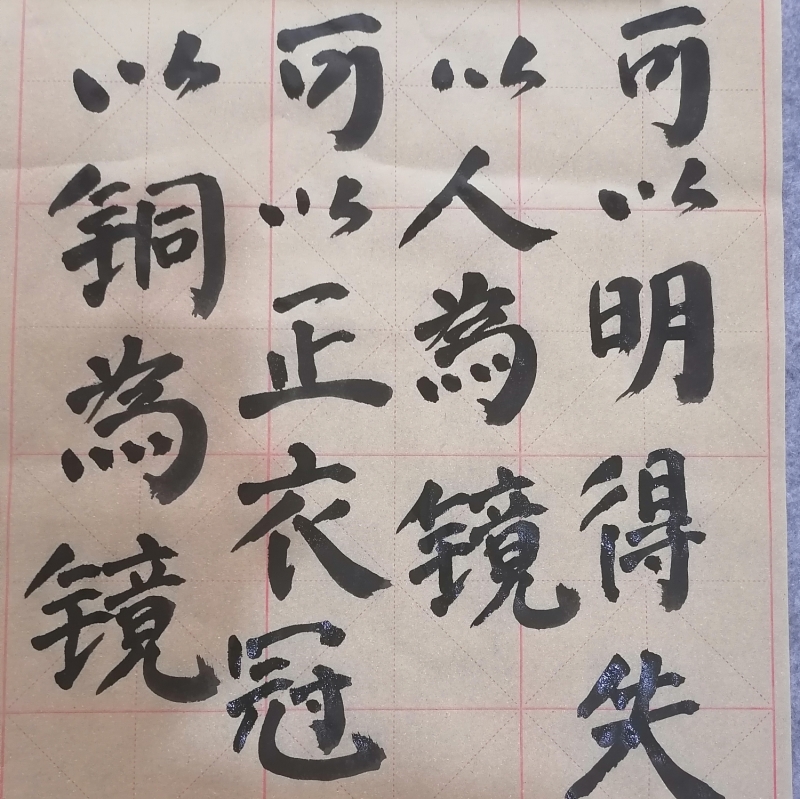 以銅為镜
可以正衣冠
以人為镜
可以明得失